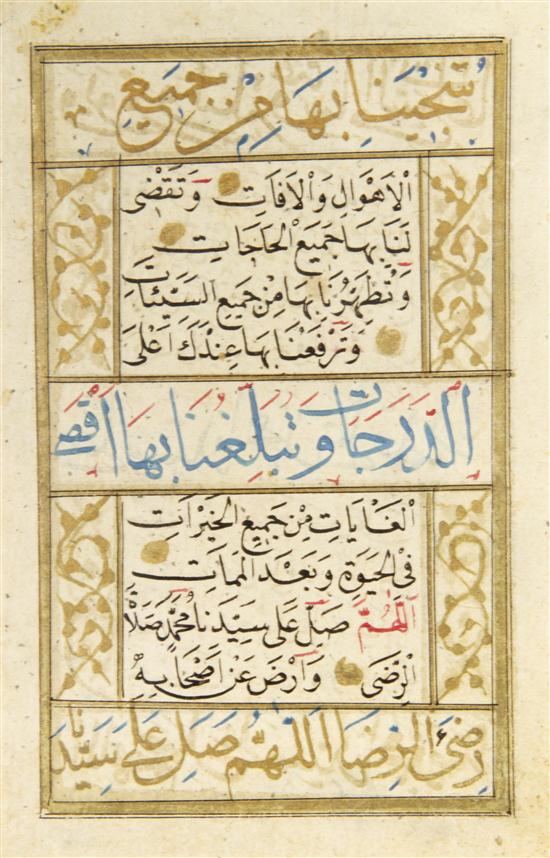 تُنْجِيْنَا بِهَا مِنْ جَمِيْعِ
الْاَهْوَالِ وَالْاٰفَاتِ وَتَقْضِى
لَنَا بِهَا جَمِيْعَ الْحَاجَاتِ
وَتُطَهِّرُنَا بِهَا مِنْ جَمِيْعِ السَّيِّئَاتِ
وَتَرْفَعُنَا بِهَا عِنْدَكَ اَعْلَى
الدَّرَجَاتِ وَتُبَلِّغُنَا بِهَا اَقْصَى
الْغَايَاتِ مِنْ جَمِيْعِ الْخَيْرَاتِ
فِى الْحَيٰوةِ وَبَعْدَ الْمَمَاتِ
اَللّٰهُمَّ صَلِّ عَلٰى سَيِّدِنَا مُحَمَّدٍ صَلَاةَ
الرِّضٰى وَارْضَ عَنْ اَصْحَابِهِ
رِضَى الرِّضَا اَللّٰهُمَّ صَلِّ عَلٰى سَيِّدِنَا